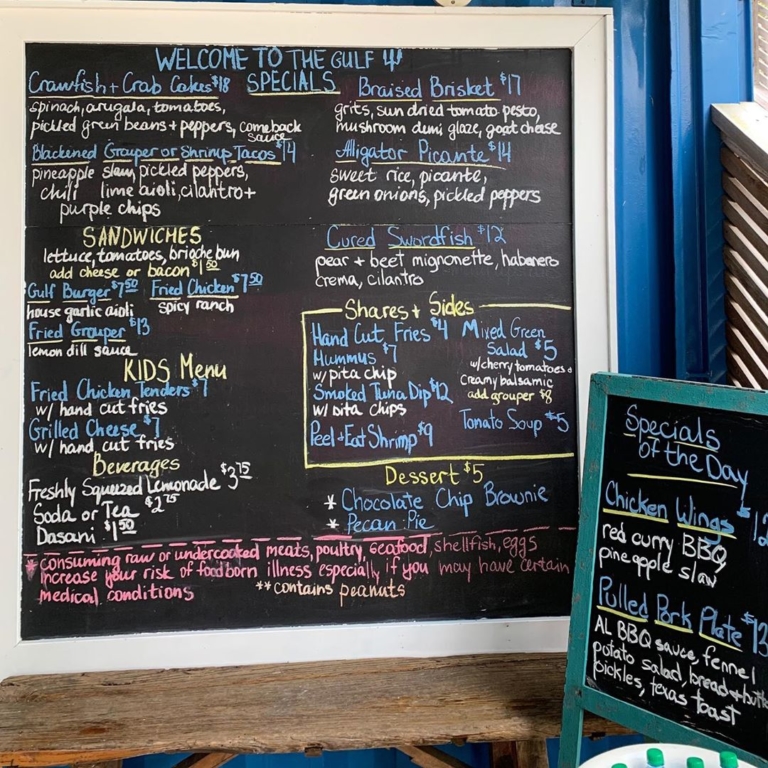 WELCOME TO THE GULF
SPECIALS
Crawfish + Crab Cakes $18
spinach, arugala, tomatoes,
pickled green beans + peppers, comeback
sauce
Blackened Grouper or Shrimp Tacos $14
pineapple slaw, pickled peppers,
chili lime aioli, cilantro +
purple chips
Braised Brisket $17
grits, sun dried tomato pesto,
mushroom demi glaze, goat cheese
Alligator Picante $14
sweet rice, picante,
green onions, pickled peppers
Cured Swordfish $12
pear + beet mignonette, habanero
crema, cilantro
SANDWICHES
lettuce, tomatoes, brioche bun
add cheese or bacon $1 50
Gulf Burger $7 50 Fried Chicken $7 50
house garlic aioli spicy ranch
Fried Grouper $13
lemon dill sauce
KIDS Menu
Fried Chicken Tenders $7
w/ hand cut fries
Grilled Cheese $7
w/ hand cut fries
Beverages
Freshly Squeezed Lemonade $3 75
Soda or Tea $2 75
Dasani $1 50
Shares + Sides
Hand Cut Fries $4
Hummus $7
w/ pita chip
Smoked Tuna Dip $12
w/ pita chips
Peel + Eat Shrimp $9
Mixed Green
Salad $5
w/ cherry tomatoes +
creamy balsamic
add grouper $8
Tomato Soup $5
Dessert $5
* Chocolate Chip Brownie
* Pecan Pie
* consuming raw or undercooked meats, poultry, seafood, shellfish, eggs
increase your risk of foodborn illness especially if you may have certain
medical conditions **contains peanuts
Specials
of the Day
Chicken Wings $12
red curry BBQ,
pineapple slaw
Pulled Pork Plate $13
AL BBQ sauce, fennel
potato salad, bread + butter
pickles, texas toast